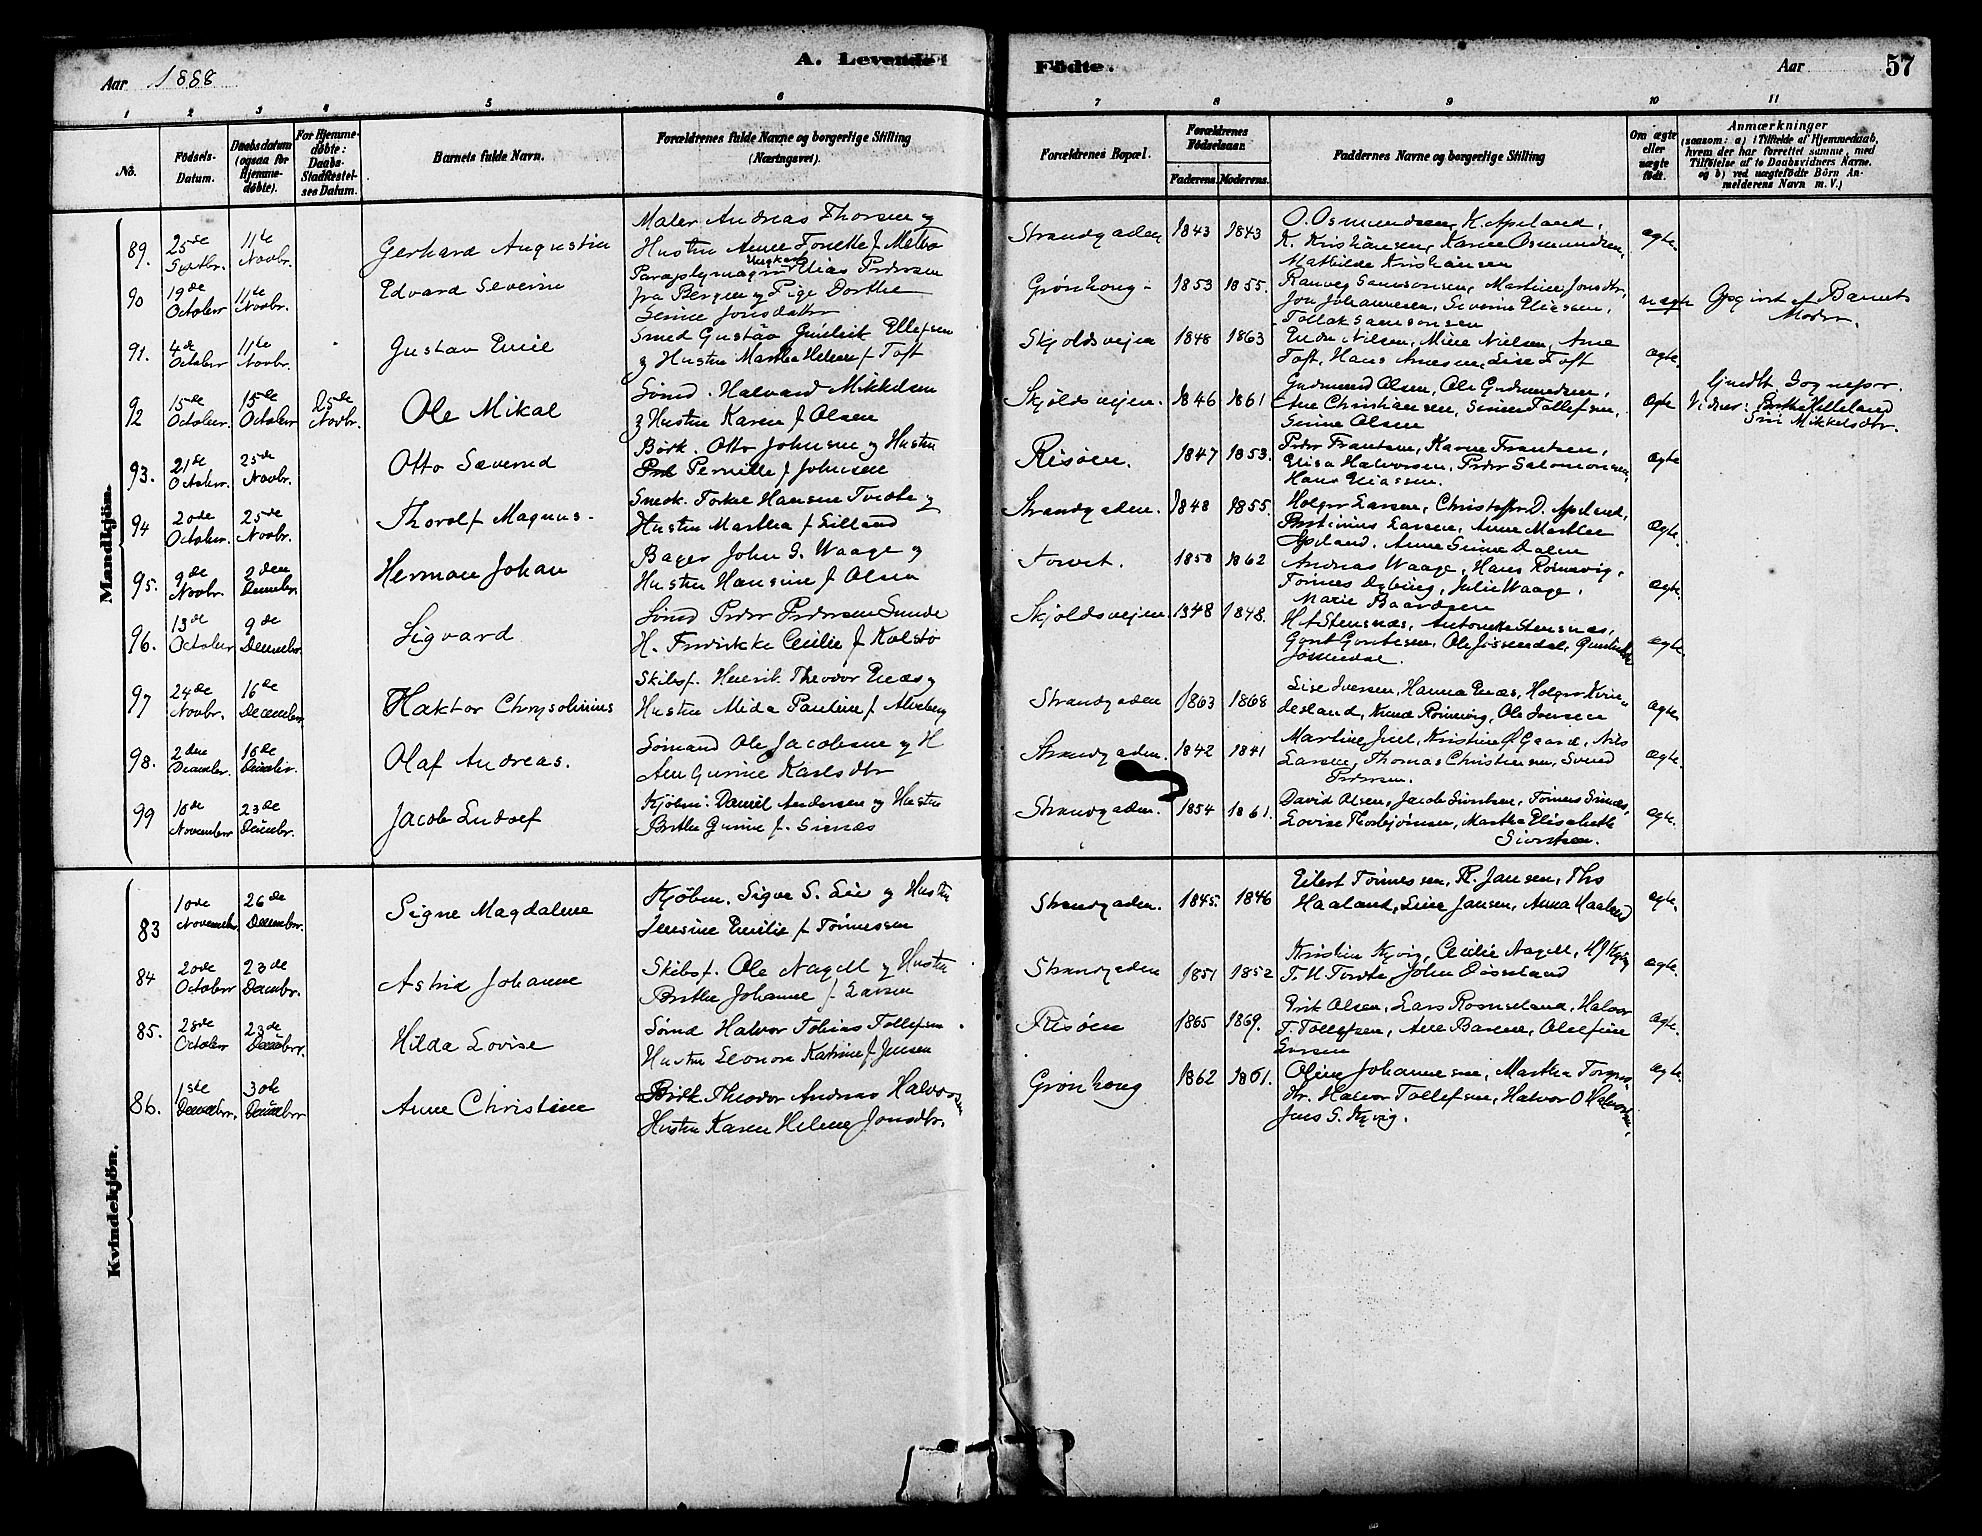 Aar 1888
A. Levende
Fødte.
Aar
57
1 2 3 4 5 6 7 8 9 10 11
No.
Fødsels-Datum.
Daabsdatum (ogsaa for Hjemmedøbte).
For Hjemmedøbte: Daabs-Stadfæstelses Datum.
Barnets fulde Navn.
Forældrenes fulde Navne og borgerlige Stilling (Næringsvei).
Forældrenes Bopæl.
Forældrenes Fødselsaar.
Faderens. Moderens.
Faddernes Navne og borgerlige Stilling
Om ægte eller uægte født.
Anmærkninger
(saasom: a) i Tilfælde af Hjemmedaab, hvem der har forrettet samme, med Tilføielse af to Daabsvidners Navne, og b) ved uægtefødte Børn Anmelderens Navn m. V.)
Mandkjön.
89. 25de Septbr. 11te Novbr. Gerhard Augustin
Maler Andreas Thorsen og
Hustru Anne Tonette f. Melbo
Strandgaden 1843 1843
O. Osmundsen, K. Apeland,
K. Kristiansen, Karen Osmundsen,
Mathilde Kristiansen
ægte.
90 19de October 11te Novbr. Edvard Severin
Paraplymager Ungkarl Elias Pedersen
fra Bergen og Pige Dorthe
Serine Jonsdatter
Grønhoug 1853 1855.
Ranveg Samsonsen, Martine Jonsdtr,
Jon Johannesen, Severin Eliesen,
Tollak Samsonsen
uægte Opgivet af Barnets
Moder.
91. 4de October 11te Novbr. Gustav Emil
Smed Gustav Hendrik Ellefsen
og Hustru Martha Helene f. Toft
Skjoldsveien 1848 1863
Endre Nilsen, Mine Nielsen, Ane
Toft, Hans Arnesen, Lise Toft
ægte.
92 15de October 15de October 25de Novbr. Ole Mikal
Sømd. Halvard Mikkelsen
og Hustru Karen f. Olsen
Skjoldsveien. 1846 1861
Gudmund Olsen, Ole Gudmundsen,
Ane Christiansen, Sirene Tollefsen,
Serine Olsen
ægte
hjmdbt. Sognepr.
Vidner: Berthe Helleland
Siri Mikkelsdtr.
93. 21de October. 25de Novbr. Otto Severud
Børk. Otto Johnsen og Hustru
Pernille f. Johnsen
Risøen. 1847 1853.
Peder Frantsen, Karen Frantsen,
Elisa Halvorsen, Peder Salomonsen,
Hans Eliassen.
ægte
94 20de October. 25de Novbr. Thorolf Magnus.
Snedk. Torkel Hansen Tvedte og
Hustru Martha f. Lilland
Strandgaden. 1848 1855.
Holger Larsen, Christoffer D. Apeland,
Larsen, Anne Marthe
Apeland, Anne Serine Dalen
ægte.
95. 9de Novbr. 2den Decembr. Herman Johan
Bager John G. Waage og
Hustru Hansine f. Olsen
Torvet. 1858 1862
Andreas Waage, Hans Rønnevig,
Tønnes Dybing, Julie Waage,
Marie Baardsen
ægte.
96. 13de October 9de Decembr. Sigvard
Sømd Peder Pedersen Sunde
H. Fredrikke Cecilie f. Kolstø
Skjoldsveien 1848 1848.
H A Stensnæs, Antonette Stensnæs,
Gort Gortesen, Ole Jøsendal,
Jøsendal.
ægte.
97 24de Novbr. 16de Decembr. Haktor Chrysolinius
Skibsf. Henrik Theodor Enæs og
Hustru Alida Pauline f. Alvsberg
Strandgaden 1863 1868
Lise Iversen, Hanna Enæs, Holger Kvin-
desland, Knud Rønnevig, Ole Iversen
ægte.
98. 2den Decembr. 16de Decbr. Olaf Andreas.
Sømand Ole Jacobsen og H
Ane Gurine Karlsdtr
Strandgaden. 1842 1841
Martine Juel, Kristine Ø Gaard, Nils
Larsen, Thomas Christensen, Svend
Pedersen.
ægte.
99 10de November 23de Decembr. Jacob Ludolf
Kjøbm. Daniel Andersen og Hustru
Berthe Gurine f. Simæs
Strandgaden. 1854 1861.
David Olsen, Jacob Sivertsen, Tønnes Simæs,
Lovise Thorbjørnsen, Martha Elisabeth
Sivertsen.
ægte.
Kvindekjön.
83 10de Novembr. 26de Decembr. Signe Magdalene
Kjøbm. Sigve S. Lie og Hustru
Jensine Emilie f. Tønnessen
Strandgaden. 1845. 1846
Eilert Tønnessen, R. Jansen, Ths
Haaland, Line Jansen, Anna Haaland
ægte.
84 20de October 23de Decembr. Astrid Johanne
Skibsf. Ole Nagell og Hustru
Berthe Johanne f. Larsen
Strandgaden 1851 1852
Kristine Kyvig, Cecilie Nagell, H J Kyvig
T. H Tvedte, John Døsseland
ægte.
85. 28de October 23de Decembr. Hilda Lovise
Sømd Halvor Tobias Tollefsen
Hustru Leonore Katrine f. Jensen
Risøen 1865 1869.
Erik Olsen, Lars Romseland, Halvor
T. Tollefsen, Ane Barene, Olufine
Larsen
ægte.
86. 1ste Decembr. 30te Decembr Anne Christine
Theodor Andreas Halvorsen
Hustru Karen Helene Jonsdtr.
Grønhoug 1862 1861.
Oline Johannesen, Martha Torger-
dtr. Halvor Tollefsen, Halvor O Halvorsen,
Jens S. Kyvig.
ægte.